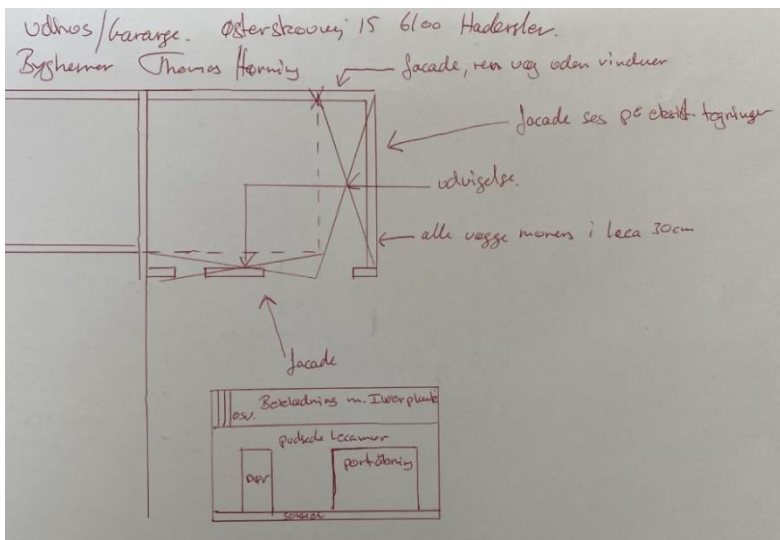 Udhus/Gararge. Østerskovvej 15 6100 Haderslev.
Bygherrer Thomas Hørning
facade, ren væg uden vinduer
facade ses på eksist. tegninger
udvigelse.
alle vægge mures i Leca 30cm
facade
Bekledning m. Iverplank
osv.
pudsede Lecamur
Dør
portåbning
sokkel